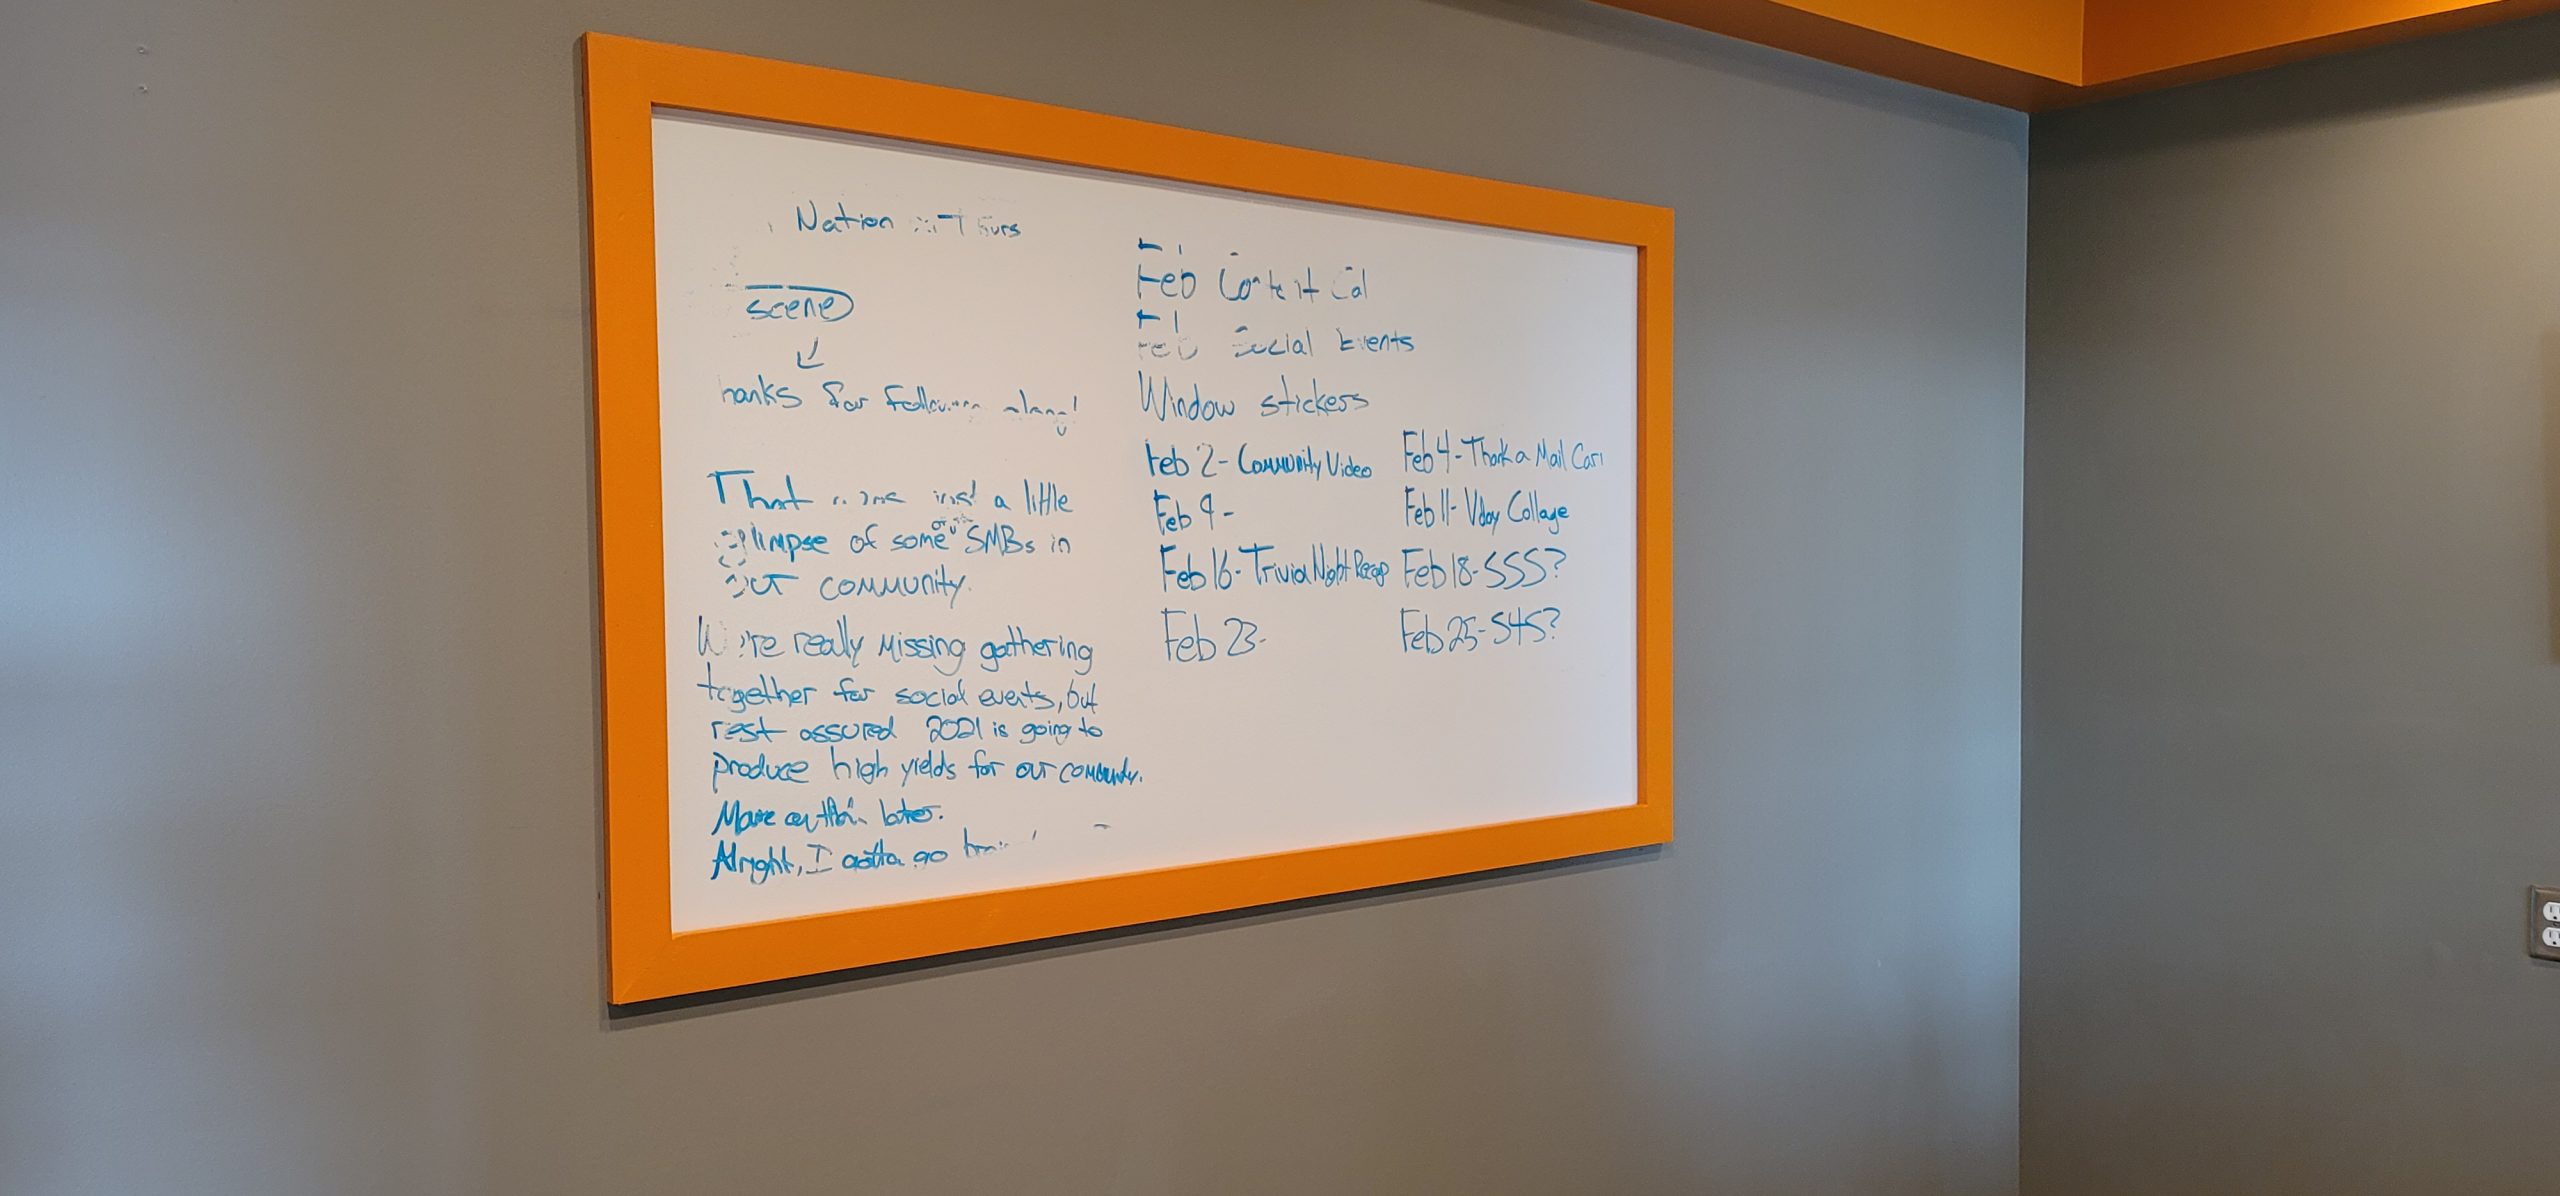 Nation
scene
for
That a little
glimpse of some SMBs in
our community.
We're really missing gathering
together for social events, but
rest assured 2021 is going to
produce high yields for our community.
More on this later.
Alright, I gotta go
Feb Content Cal
Feb Social Events
Window stickers
Feb 2- Community Video
Feb 9-
Feb 16- Trivia Night Recap
Feb 23-
Feb 4- Thank a Mail Carr
Feb 11- Vday Collage
Feb 18- SSS?
Feb 25- S4S?